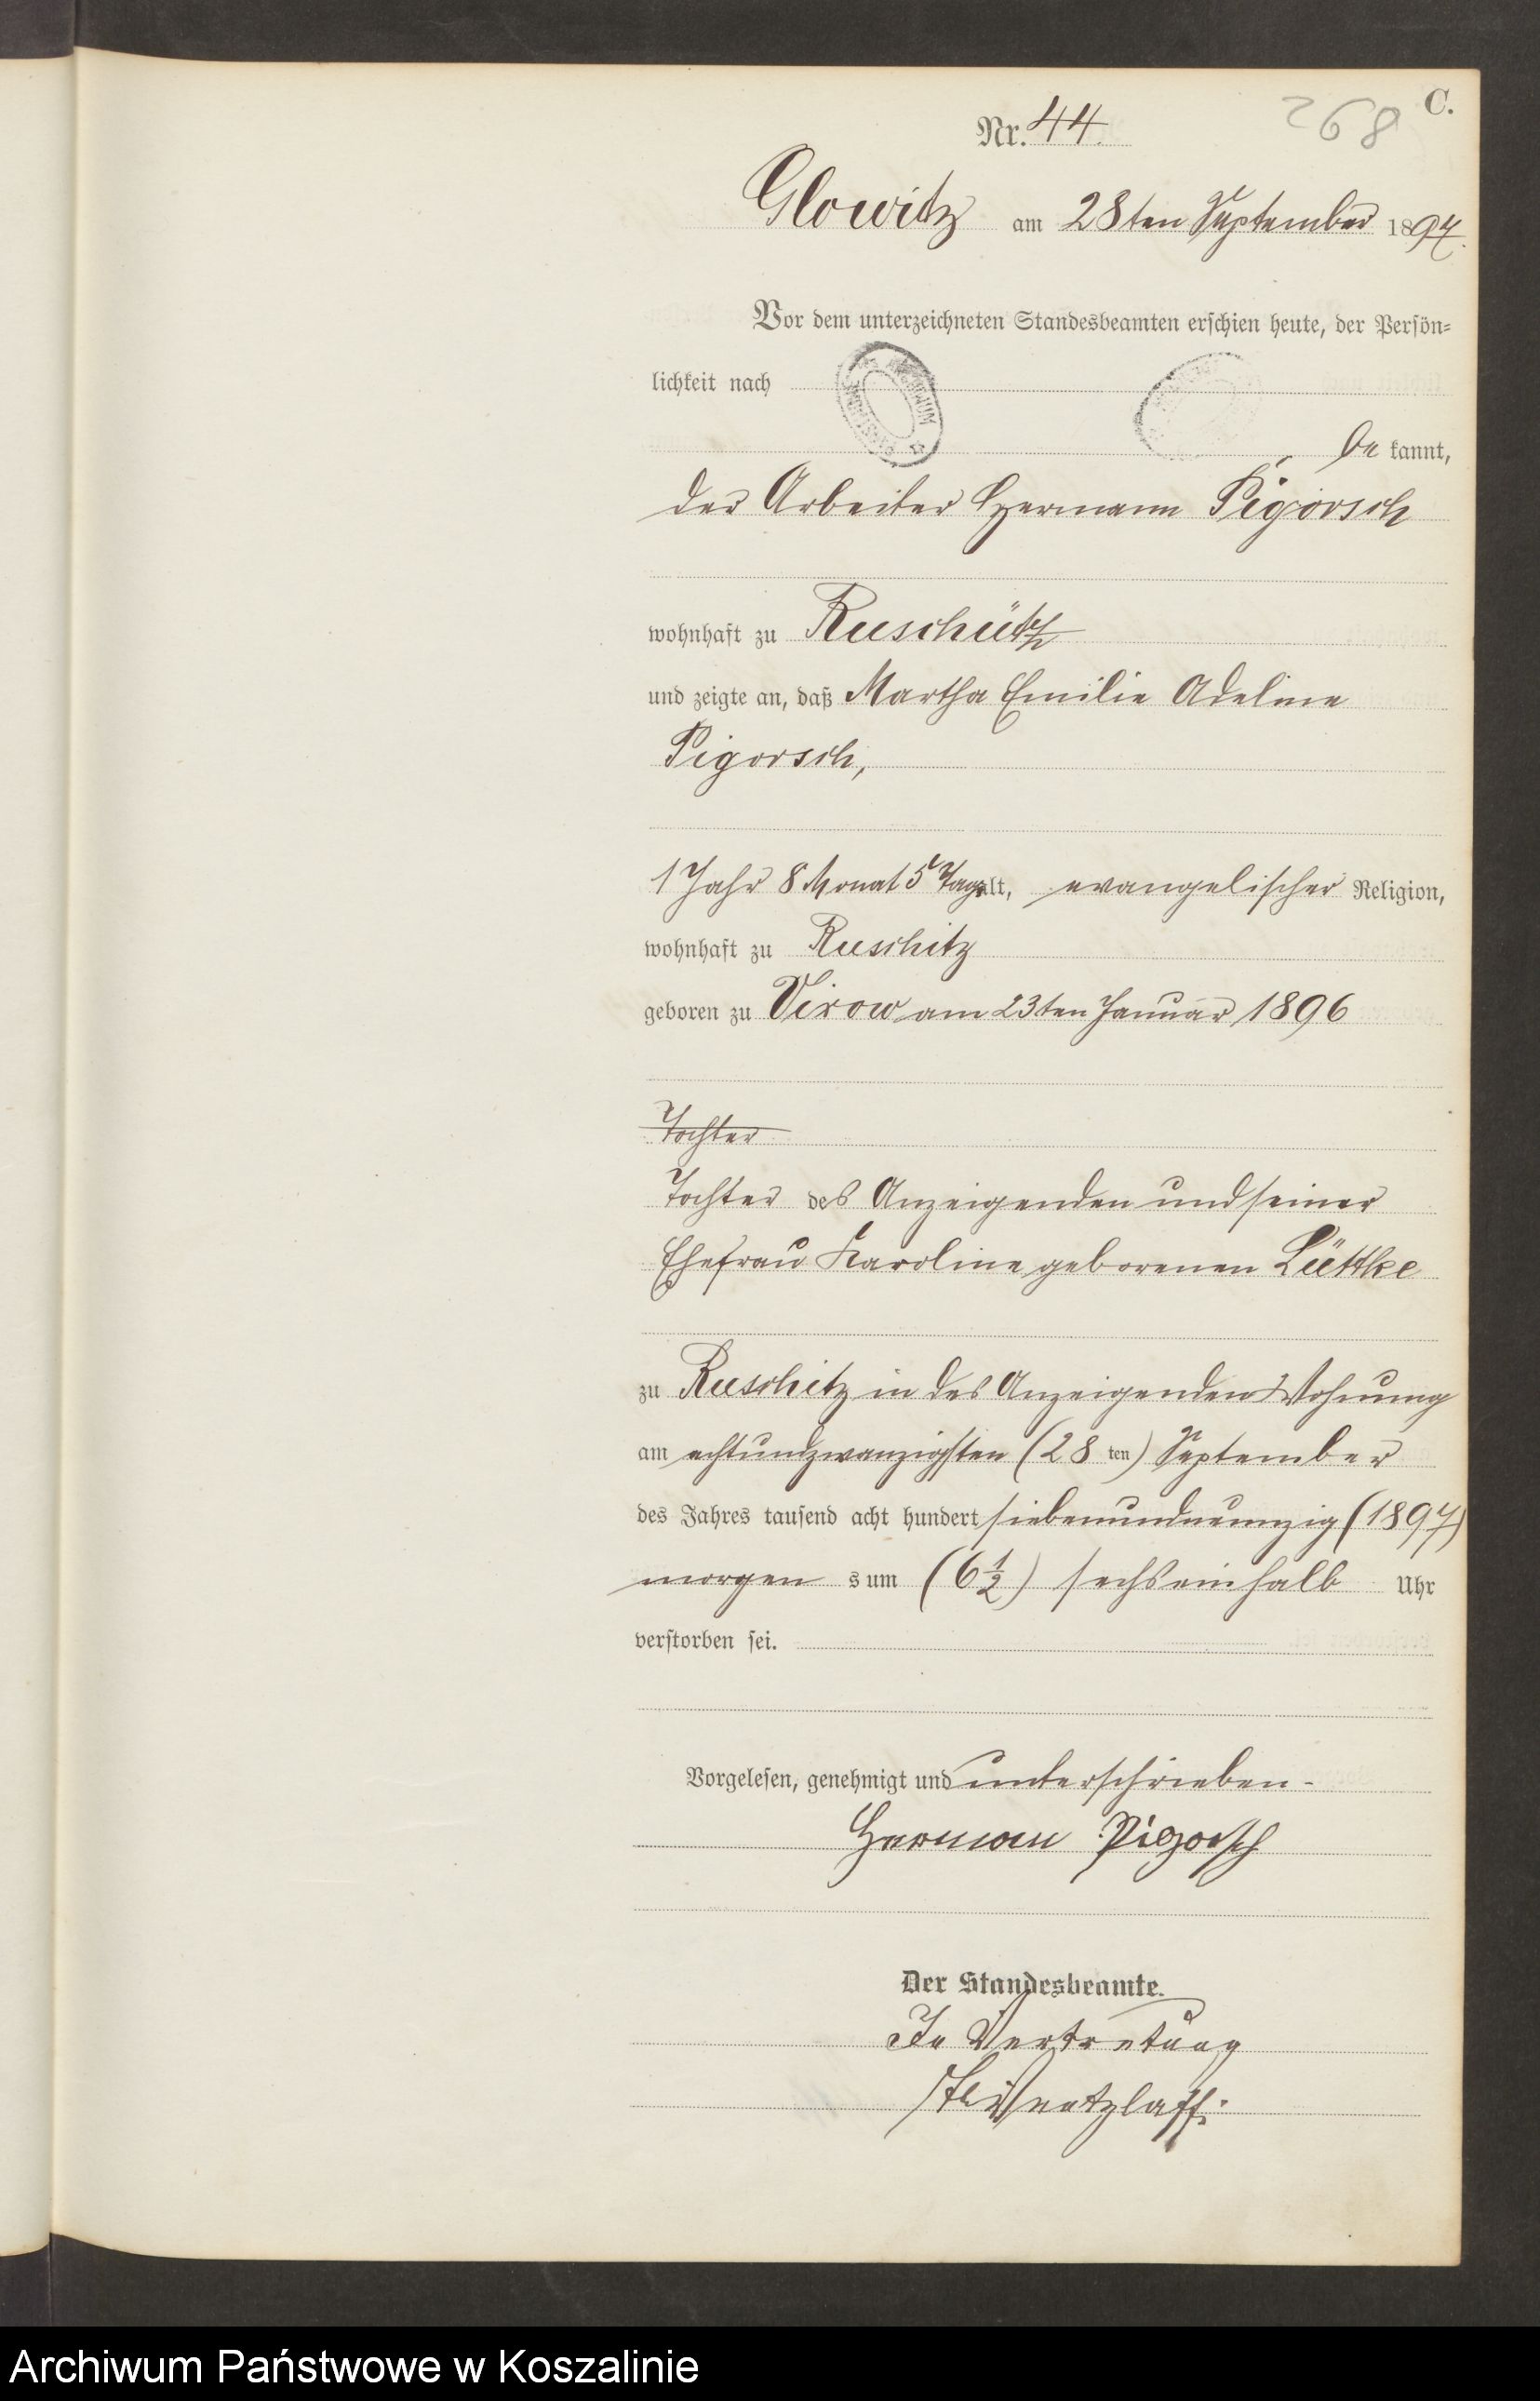 C.
268
Nr. 44.
Glowitz am 28ten September 1897.
Vor dem unterzeichneten Standesbeamten erschien heute, der Persön-
lichkeit nach
be kannt,
der Arbeiter Hermann Pigorsch
wohnhaft zu Ruschütz
und zeigte an, daß Martha Emilie Adeline
Pigorsch,
1 Jahr 8 Monat 5 Tage alt, evangelischer Religion,
wohnhaft zu Ruschitz
geboren zu Virow am 23ten Januar 1896
Tochter
Tochter des Anzeigenden und seiner
Ehefrau Karoline geborenen Lüttke
zu Ruschitz in des Anzeigenden Wohnung
am achtundzwanzigsten (28 ten) September
des Jahres tausend acht hundert siebenundneunzig (1897)
morgen s um (6 1/2) sechseinhalb Uhr
verstorben sei.
Vorgelesen, genehmigt und unterschrieben.
Herman Pigorsch
Der Standesbeamte.
In Vertretung
Wentzlaff.
Archiwum Państwowe w Koszalinie